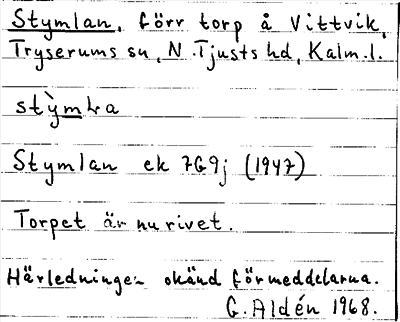 Stymlan, förr torp å Vittvik,
Tryserums sn, N. Tjusts hd, Kalm. l.
stỳmLa
Stymlan ek 7G9j (1947)
Torpet är nu rivet.
Härledningen okänd för meddelarna.
G. Aldén 1968.